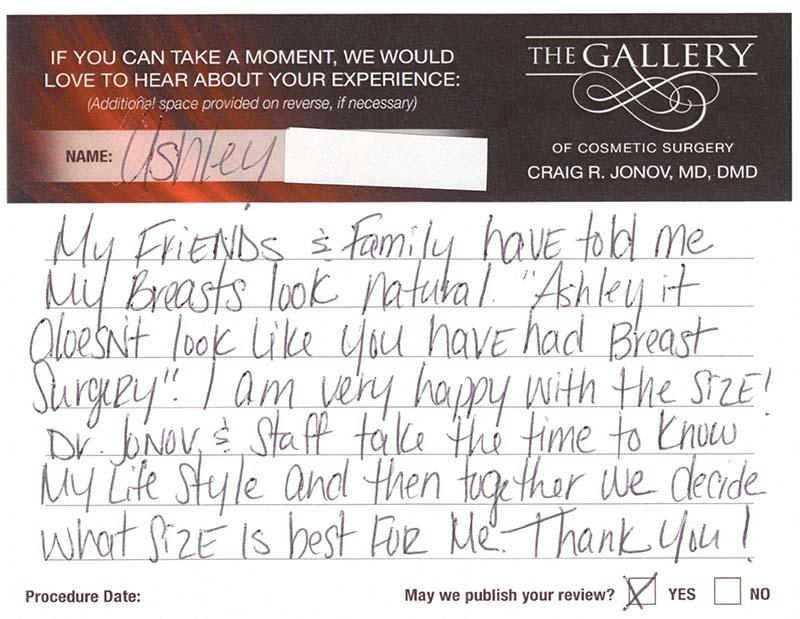 IF YOU CAN TAKE A MOMENT, WE WOULD
LOVE TO HEAR ABOUT YOUR EXPERIENCE:
(Additional space provided on reverse, if necessary)
NAME: Ashley
THE GALLERY
OF COSMETIC SURGERY
CRAIG R. JONOV, MD, DMD
My FRiENDs & Family havE told me
My Breasts look natural. "Ashley it
doesNt look like you havE had Breast
SurgERy". I am very happy with the SIZE!
DR. JONOV & Staff take the time to Know
My Life Style and then together we decide
what SIZE Is best FOR Me. Thank You!
Procedure Date:
May we publish your review? X YES NO